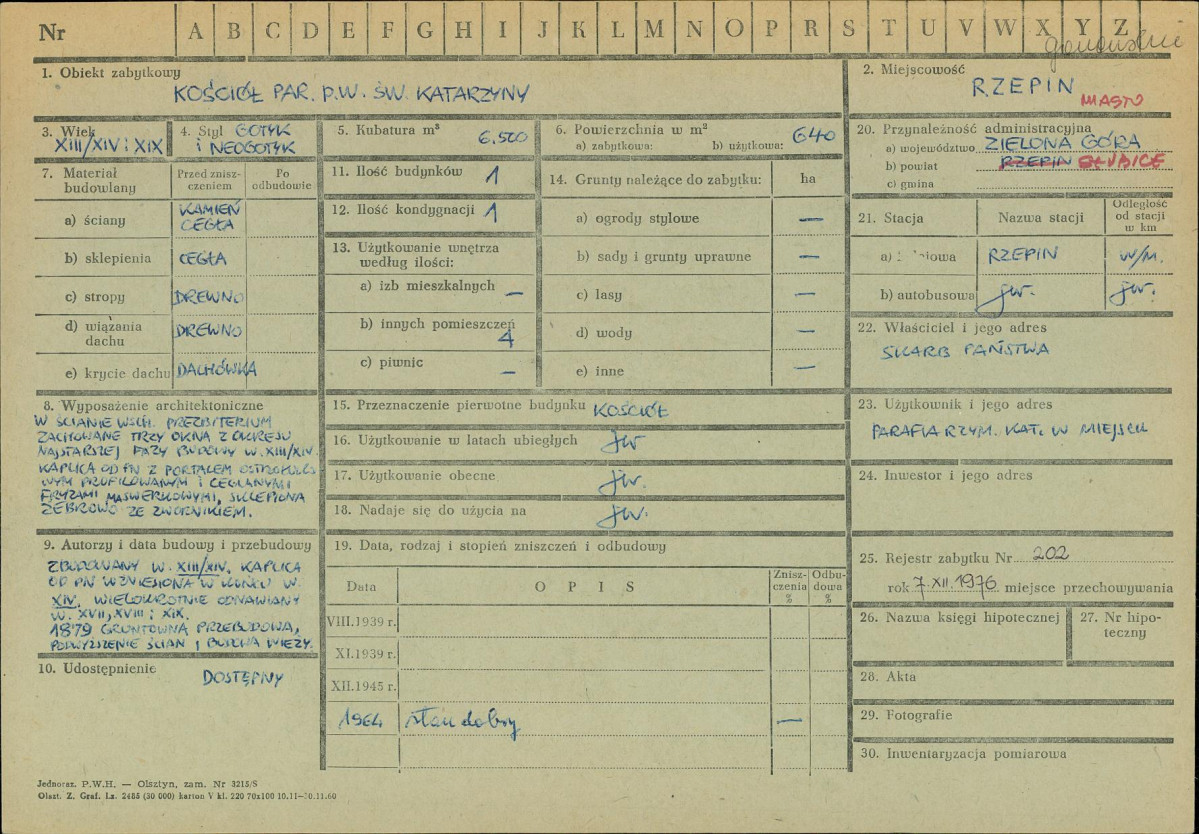 Nr A B C D E F G H I J K L M N O P R S T U V W X Y Z
1. Obiekt zabytkowy
KOŚCIÓŁ PAR. P.W. ŚW. KATARZYNY
2. Miejscowość
RZEPIN
MIASTO
3. Wiek
XIII/XIV i XIX
4. Styl GOTYK
i NEOGOTYK
5. Kubatura m³
6.500
6. Powierzchnia w m²
a) zabytkowa: b) użytkowa: 640
20. Przynależność administracyjna
a) województwo ZIELONA GÓRA
b) powiat RZEPIN SŁUBICE
c) gmina
7. Materiał budowlany
Przed zniszczeniem
Po odbudowie
a) ściany KAMIEŃ
CEGŁA
b) sklepienia CEGŁA
c) stropy DREWNO
d) wiązania dachu DREWNO
e) krycie dachu DACHÓWKA
11. Ilość budynków 1
12. Ilość kondygnacji 1
13. Użytkowanie wnętrza
według ilości:
a) izb mieszkalnych —
b) innych pomieszczeń 4
c) piwnic —
14. Grunty należące do zabytku: ha
a) ogrody stylowe —
b) sady i grunty uprawne —
c) lasy —
d) wody —
e) inne —
21. Stacja
Nazwa stacji
Odległość
od stacji
w km
a) RZEPIN W/M.
b) autobusowa jw. jw.
22. Właściciel i jego adres
SKARB PAŃSTWA
8. Wyposażenie architektoniczne
W ŚCIANIE WSCH. PREZBITERIUM
ZACHOWANE TRZY OKNA Z OKRESU
NAJSTARSZEJ FAZY BUDOWY W. XIII/XIV.
KAPLICA OD PN Z PORTALEM OSTROŁUKO
WYM PROFILOWANYM i CEGLANYMI
FRYZAMI MASWERKOWYMI, SKLEPIONA
ŻEBROWO ZE ZWORNIKIEM.
15. Przeznaczenie pierwotne budynku KOŚCIÓŁ
16. Użytkowanie w latach ubiegłych jw
17. Użytkowanie obecne jw.
18. Nadaje się do użycia na jw.
23. Użytkownik i jego adres
PARAFIA RZYM. KAT. W MIEJSCU
24. Inwestor i jego adres
9. Autorzy i data budowy i przebudowy
ZBUDOWANY W. XIII/XIV, KAPLICA
OD PN WZNIESIONA W KOŃCU W.
XIV. WIELOKROTNIE ODNAWIANY
W. XVII, XVIII i XIX.
1879 GRUNTOWNA PRZEBUDOWA,
PODWYŻSZENIE ŚCIAN i BUDOWA WIEŻY.
19. Data, rodzaj i stopień zniszczeń i odbudowy
Data OPIS Zniszczenia % Odbudowa %
VIII.1939 r.
XI.1939 r.
XII.1945 r.
1964 stan dobry —
25. Rejestr zabytku Nr 202
rok 7.XII.1976 miejsce przechowywania
26. Nazwa księgi hipotecznej
27. Nr hipoteczny
28. Akta
29. Fotografie
30. Inwentaryzacja pomiarowa
10. Udostępnienie
DOSTĘPNY
Jednoraz. P.W.H. — Olsztyn, zam. Nr 3215/S
Olszt. Z. Graf. Lz. 2485 (30 000) karton V kl. 220 70x100